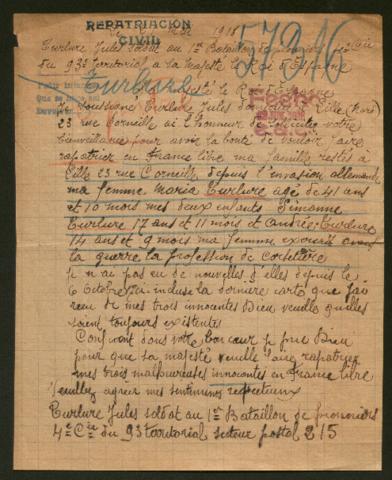 REPATRIACION
CIVIL
1918
Turlure Jules soldat au 1er Bataillon de pionniers 4e Cie
du 93e territorial a sa Majesté le Roi d'Espagne
57916
Turlure
le Roi d'Espagne
Je soussigné Turlure Jules Lille (Nord)
23 rue Corneille ai l'honneur de votre
bienveillance pour avoir la bonté de vouloir faire
rapatrier en France libre ma famille restés à
Lille 23 rue Corneille depuis l'envasion allemande
ma femme Maria Turlure agé de 41 ans
et 10 mois mes deux enfants Simonne
Turlure 17 ans et 11 mois et Andrée Turlure
14 ans et 9 mois ma femme exercai avant
la guerre la profession de corsetière
je n ai pas eu de nouvelles d'elles depuis le
6 Octobre la dernière carte que jai
recu de mes trois innocentes Dieu veuille quelles
soient toujours existentes
Confiant dans votre bon cœur je prie Dieu
pour que sa majesté veuille faire rapatrier
mes trois malheureuses innocentes en France libre
Veuillez agréer mes sentiments respectueux
Turlure Jules soldat au 1er Bataillon de pionniers
4e Cie du 93 territorial secteur postal 215